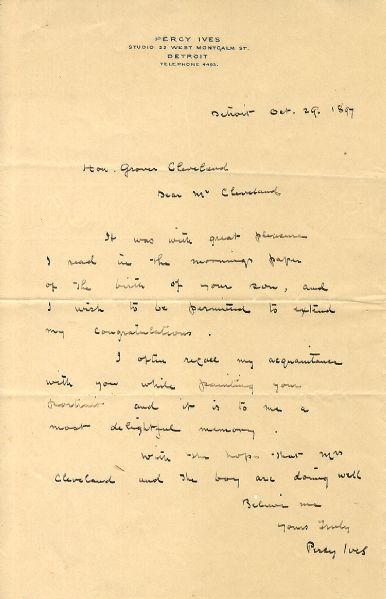 PERCY IVES
STUDIO 22 WEST MONTCALM ST.
DETROIT
TELEPHONE 4493.
Detroit Oct. 29. 1897
Hon. Grover Cleveland
Dear Mr Cleveland
It was with great pleasure
I read in the mornings paper
of the birth of your son, and
I wish to be permitted to extend
my congratulations.
I often recall my acquaintance
with you while painting your
portrait and it is to me a
most delightful memory.
With the hope that Mrs
Cleveland and the boy are doing well
Believe me
Yours Truly
Percy Ives